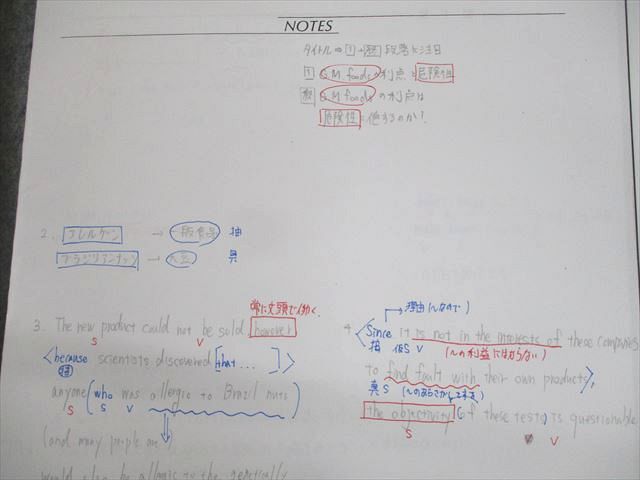 NOTES
タイトル ⇒ 1 + 終 段落に注目
1 G M foods の利点と危険性
終 G M foods の利点は
危険性に値するのか?
2. アレルゲン → 一般食品 抽
ブラジリアンナッツ → 大豆 具
常に文頭で働く。
3. The new product could not be sold however
S V
< because scientists discovered [that ... ] >
接
anyone (who was allergic to Brazil nuts)
S V
(and many people are
would also be allergic to the genetically
理由(〜なので)
4. < Since it is not in the interests of these companies
接 仮S V (〜の利益にはならない)
to find fault with their own products >,
真S (〜のあらさがしをする)
the objectivity (of these tests) is questionable
S V